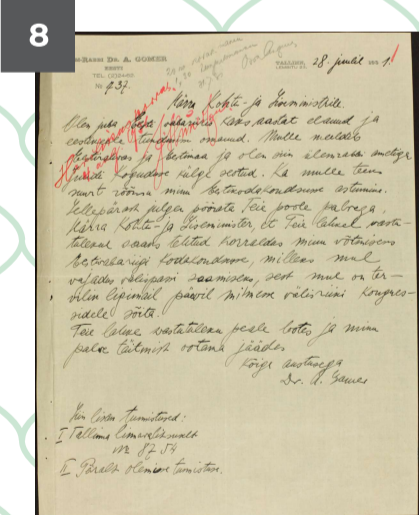 8
DR. A. GOMER
EESTI
TEL. (2)24-60
№ 937.
TALLINN, 28. juulil 193 1.
Härra Kohtu- ja Siseministrile.
Olen juba Eesti vabariigis kaks aastat elanud ja
eestikeele tundmise omanud. Mulle meeldib
Eestirahvas ja Eestimaa ja olen siin ülemrabi ametiga
Juudi koguduse külge seotud. Ka mulle teeks
suurt rõõmu minu Eestikodakondsusse astumine.
Sellepärast julgen pöörata Teie poole palvega,
Härra Kohtu- ja Siseminister, et Teie lahkel vastu-
tulekul saaks lehitud korraldus minu võtmisest
Eestivabariigi kodakondsusse, milleks mul
vajadus välispassi saamiseks, sest mul on ter-
vilin ligemail päevil mitmesse välisriiki kongres-
sidele sõita.
Teie lahke vastutuleku peale lootes ja minu
palve täitmist ootama jäädes
Kõige austusega
Dr. A. Gomer
Siin lisan tunnistused:
I Tallinna linnavalitsuselt
№ 8754
II Paralt olemise tunnistus.